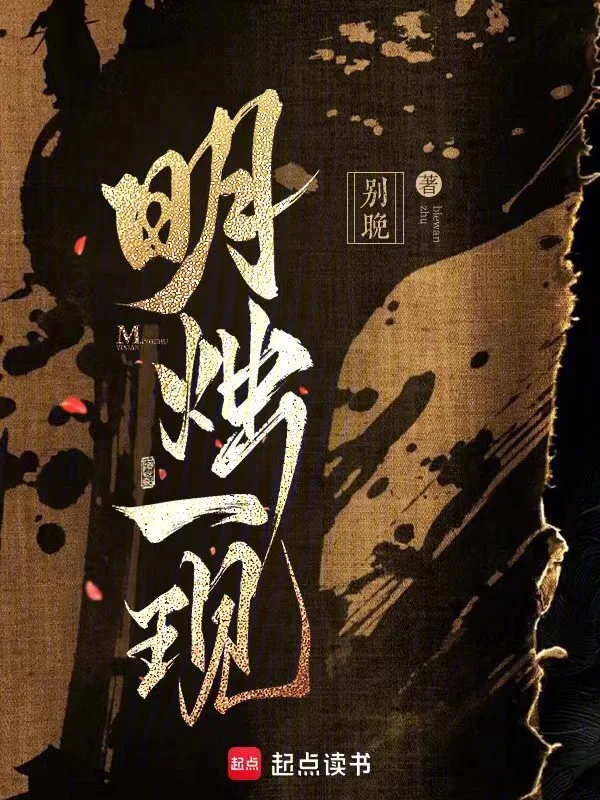 明烛一现
别晚
著
biewan
zhu
MINGZHU
YIXIAN
起点 起点读书